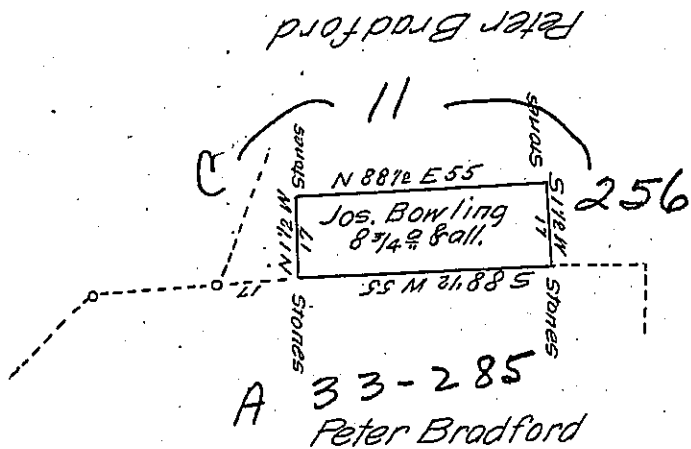 Peter Bradford
C 11 256
Stones
Stones
N 88½ E 55
Jos. Bowling
8 3/4 a & all.
N 1½ W
17
S 1½ W
17
17
S 88½ W 55
Stones
Stones
A 33-285
Peter Bradford